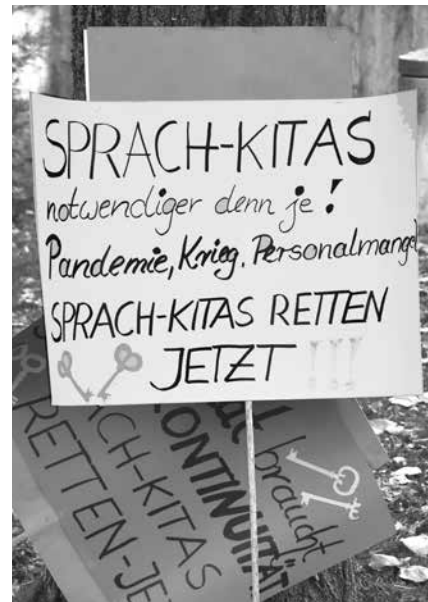 SPRACH-KITAS
notwendiger denn je!
Pandemie, Krieg, Personalmangel
SPRACH-KITAS RETTEN
JETZT !!!
braucht
KONTINUITÄT
SPRACH-KITAS
RETTEN-JE